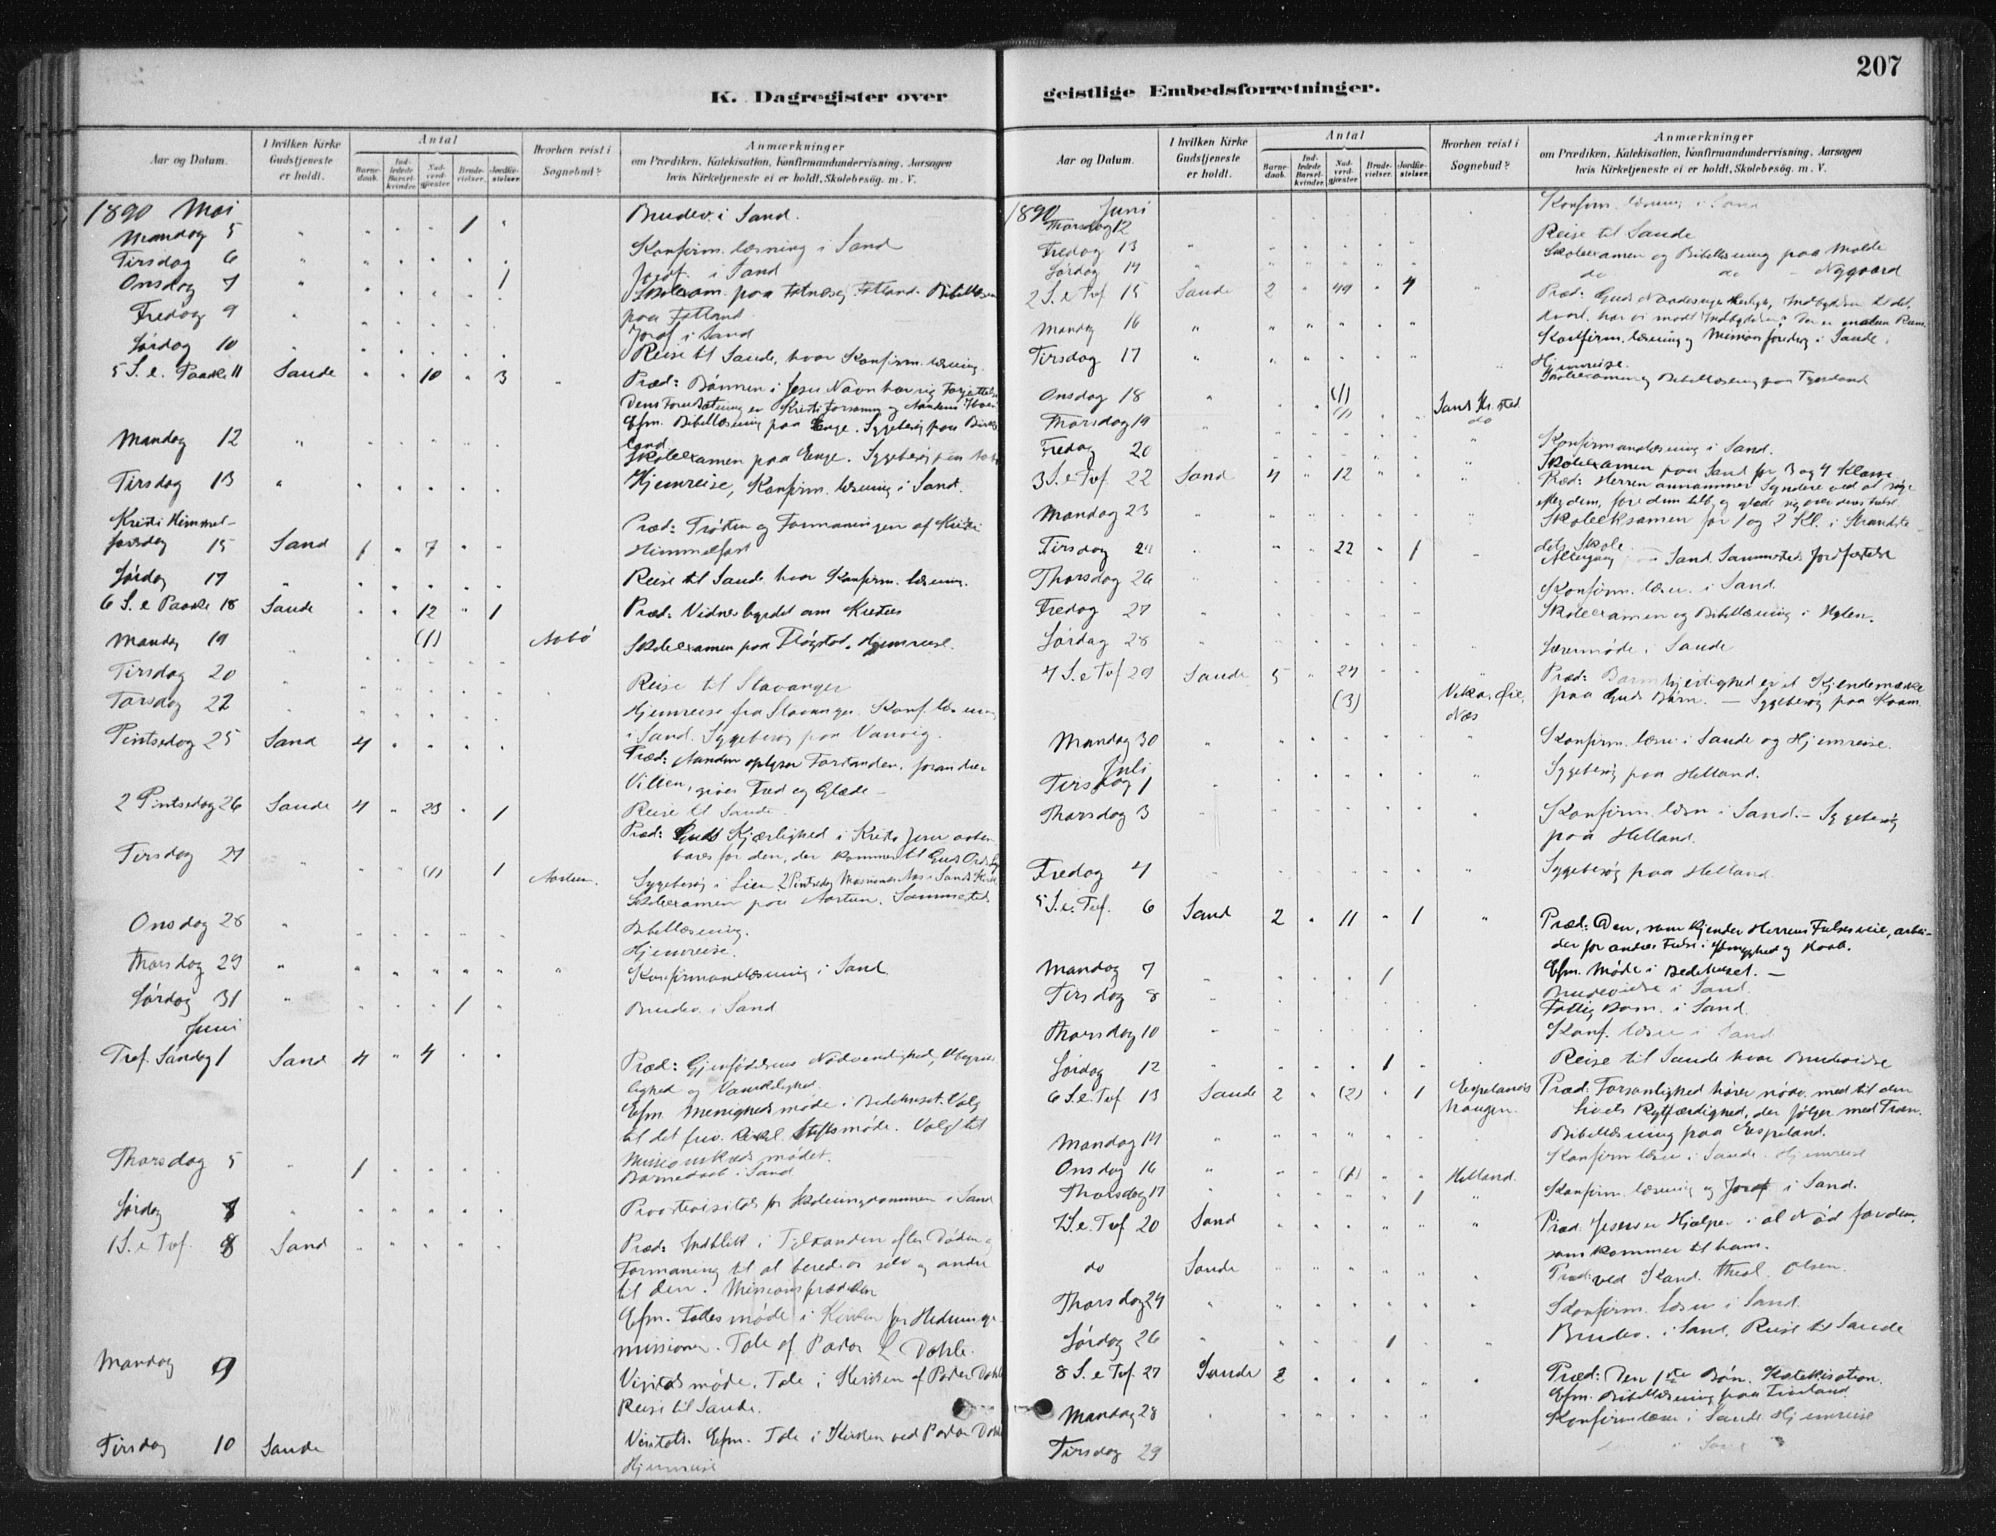 207
K. Dagregister over
Aar og Datum.
I hvilken Kirke Gudstjeneste er holdt.
Antal
Barne-daab.
Ind-ledede Barsel-kvinder.
Nad-verd-gjæster
Brude-vielser.
Jordfæ-stelser.
Hvorhen reist i Sognebud?
Anmærkninger
om Prædiken, Katekisation, Konfirmandundervisning, Aarsagen
hvis Kirketjeneste ei er holdt, Skolebesøg. m. V.
1890 Mai
Mandag 5 1 Brudev. i Sand.
Tirsdag 6 Konfirm. læsning i Sand
Onsdag 7 1 Jordf. i Sand
Fredag 9 Skoleexam. paa
paa Fatland
Lørdag 10 Jordf i Sand
Reise til Sande, hvor Konfirm. læsning.
5 S. e. Paaske 11 Sande 10 3 Præd: Bønnen i Jesu Navn
Efm. Bibellæsning paa Enge. Sygebesøg paa
Mandag 12 Skoleexamen paa Enge. Sygebesøg
Tirsdag 13 Hjemreise, Konfirm. læsning i Sand.
Kristi Himmel-
fartsdag 15 Sand 1 7 Præd: Trøsten og Formaningen af Kristi
Himmelfart
Lørdag 17 Reise til Sande hvor Konfirm. læsning.
6 S. e Paaske 18 Sande 12 1 Præd: Vidnesbyrdet om Kristus
Mandag 19 (1) Aabø Skoleexamen paa Fløgstad. Hjemreise.
Tirsdag 20 Reise til Stavanger
Torsdag 22 Hjemreise fra Stavanger. Konf. læsning
i Sand. Sygebesøg paa Vanvig.
Pintsedag 25 Sand 4 Præd: Aanden oplyser Forstanden, forandrer
Villien, giver Fred og Glæde
2 Pintsedag 26 Sande 4 23 1 Reise til Sande
Præd: Guds Kjærlighed i Kristo Jesu aaben-
bares for den, der kommer til Guds Ord
Tirsdag 27 (1) 1 Aartun. Sygebesøg i Lien
Skoleexamen paa Aartun. Sammesteds
Onsdag 28 Bibellæsning.
Hjemreise.
Thorsdag 29 Konfirmandlæsning i Sand
Lørdag 31 1 Brudev. i Sand
Juni
Tref. Søndag 1 Sand 4 4 Præd: Gjenfødelsens Nødvendighed,
lighed og
Efm Menighedsmøde i Bedehuset. Valg
til det friv. kirkl. Stiftsmøde. Valg til
Missionskredsmødet.
Thorsdag 5 1 Barnedaab i Sand
Lørdag 7 Provstevisitats for Skoleungdommen i Sand
1 S. e Tref. 8 Sand Præd: Indblik i Tilstanden efter Døden og
Formaning til at berede os selv og andre
til den. Missionsprædiken
Efm. Fællesmøde i Kirken for Hedninge-
missionen. Tale af Pastor L Dahle.
Mandag 9 Visitatsmøde. Tale i Kirken af Pastor Dahle
Reise til Sande.
Tirsdag 10 Sande Visitats. Efm. Tale i Kirken ved Pastor Dahle
Hjemreise
geistlige Embedsforretninger.
Aar og Datum.
I hvilken Kirke Gudstjeneste er holdt.
Antal
Barne-daab.
Ind-ledede Barsel-kvinder.
Nad-verd-gjæster
Brude-vielser.
Jordfæ-stelser.
Hvorhen reist i Sognebud?
Anmærkninger
om Prædiken, Katekisation, Konfirmandundervisning, Aarsagen
hvis Kirketjeneste ei er holdt, Skolebesøg. m. V.
1890 Juni
Thorsdag 12 Konfirm. læsning i Sand
Fredag 13 Reise til Sande
Lørdag 14 Skoleexamen og Bibellæsning paa Molde
do do Nygaard
2 S. e Tref 15 Sande 2 49 4 Præd: Guds
Mandag 16 Konfirm. læsning og Missionsforedrag i Sande.
Tirsdag 17 Hjemreise.
Skoleexamen og Bibellæsning paa
Onsdag 18 (1) Sand
Thorsdag 19 (1) do
Fredag 20 Konfirmandlæsning i Sand.
Skoleexamen paa Sand for 3 og 4 Klasse
3 S. e Tref. 22 Sand 4 12 Præd: Herren annammer Syndere ved at søge
efter dem, føre dem til sig og glæde sig over deres Frelse.
Mandag 23 Skoleeksamen for 1 og 2 Kl. i Strandste-
dets Skole.
Tirsdag 24 22 1 Altergang i Sand. Sammesteds Jordfæstelse
Thorsdag 26 Konfirm. læsn. i Sand.
Fredag 27 Skoleexamen og Bibellæsning i Hylen.
Lørdag 28 Lærermøde i Sande
4 S. e Tref 29 Sande 5 24 Præd: Barmhjertighed er et Kjendemærke
(3) Vika, Øie, Næs paa Guds Børn. — Sygebesøg paa Kvam.
Mandag 30 Konfirm. læsn i Sande og Hjemreise.
Juli
Tirsdag 1 Sygebesøg paa Helland.
Thorsdag 3 Konfirm. læsn i Sand. – Sygebesøg
paa Helland.
Fredag 4 Sygebesøg paa Helland.
5 S. e. Tref. 6 Sand 2 11 1 Præd: Den, som kjender Herrens Frelsesveie, arbei-
der for andres Frelse i Ydmyghed og Haab.
Efm. Møde i Bedehuset. —
Mandag 7 1 Brudevielse i Sand.
Tirsdag 8 Fattig Kom. i Sand.
Thorsdag 10 Konf. læsn i Sand
Lørdag 12 1 Reise til Sande hvor Brudevielse
6 S. e. Tref 13 Sande 2 (2) 1 Espelands Haugen. Præd: Forsonlighed hører nødv. med til den
Livets Retfærdighed, der følger med Troen.
Bibellæsning paa Espeland.
Mandag 14 Konfirm læsn i Sande. Hjemreise
Onsdag 16 (1) Helland.
Thorsdag 17 1 Konfirm. læsning og Jordf i Sand.
7 S. e. Tref 20 Sand Præd. Jesus er Hjælper i al Nød for dem,
som kommer til ham.
do Sande Præd: ved Kand. theol. Olsen.
Thorsdag 24 Konfirm. læsn i Sand.
Lørdag 26 1 Brudev. i Sand. Reise til Sande
8 S. e Tref. 27 Sande 2 Præd: Den 1ste Bøn. Katekisation.
Efm. Bibellæsning paa
Mandag 28 Konfirm læsn i Sande. Hjemreise
Tirsdag 29